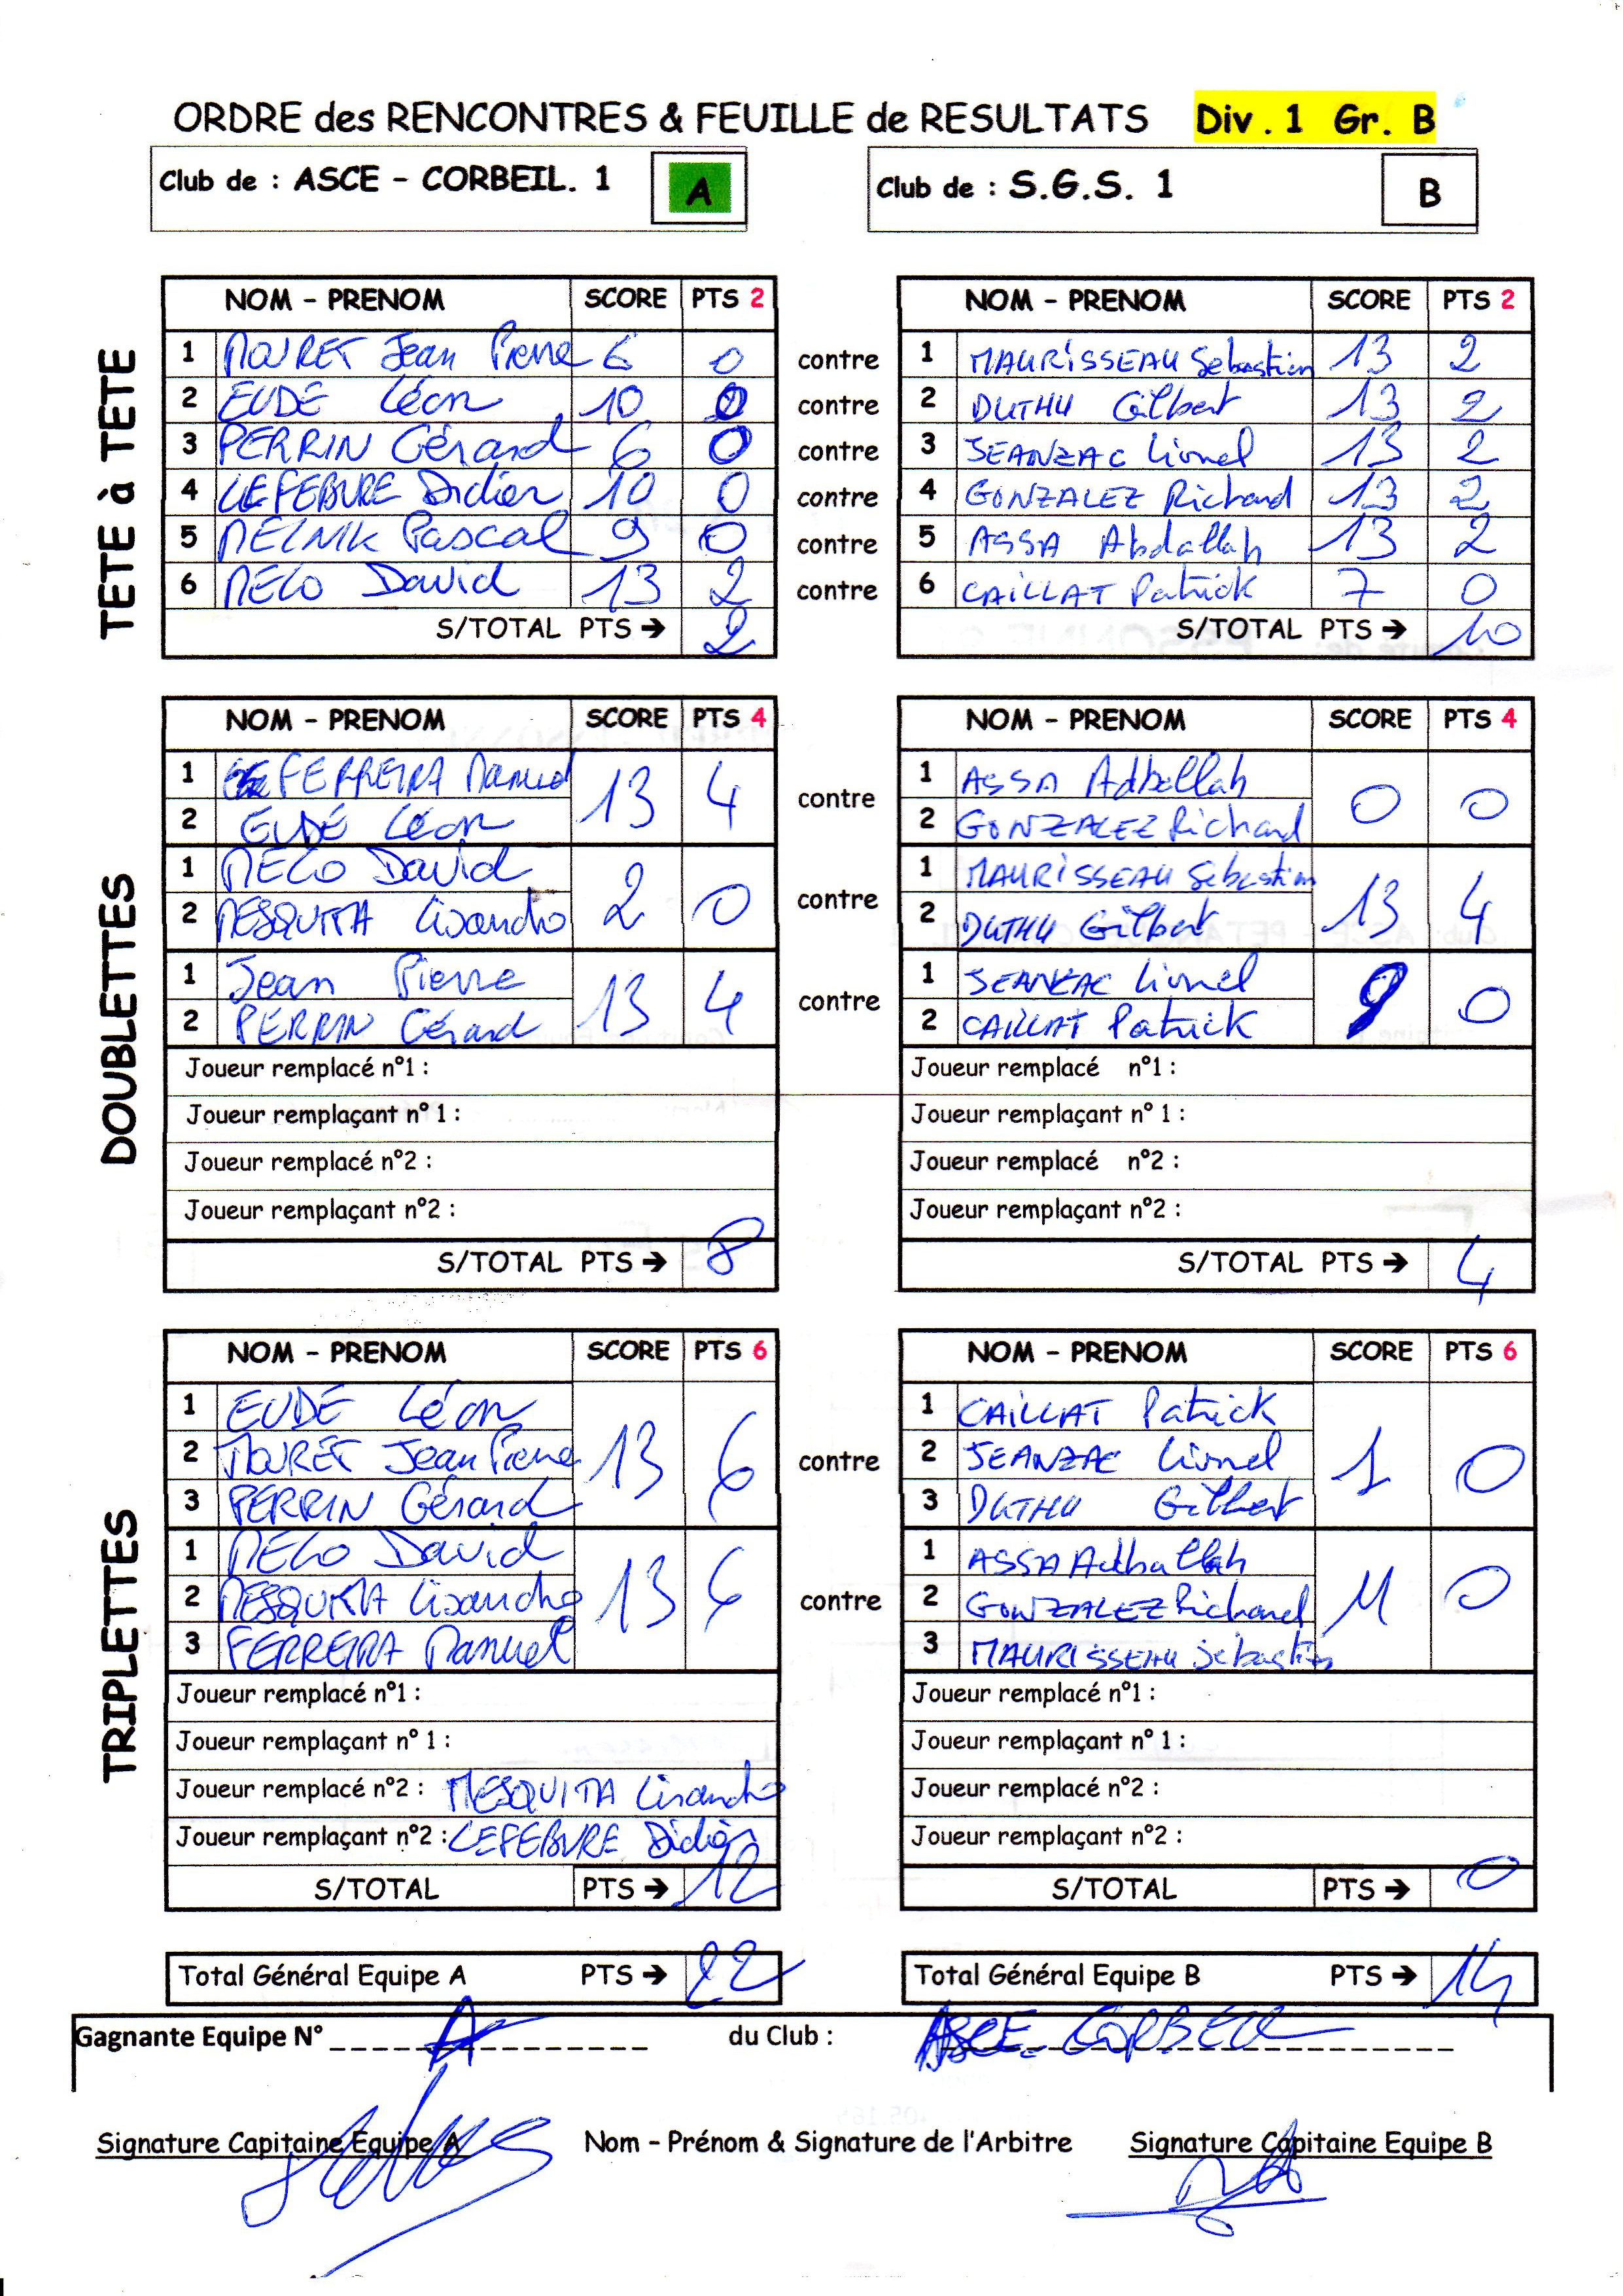 ORDRE des RENCONTRES & FEUILLE de RESULTATS Div. 1 Gr. B
Club de : ASCE - CORBEIL. 1 A Club de : S.G.S. 1 B
TETE à TETE
NOM - PRENOM SCORE PTS 2 NOM - PRENOM SCORE PTS 2
1 MOURET Jean Pierre 6 0 contre 1 MAURISSEAU Sébastien 13 2
2 EUDE Léon 10 0 contre 2 DUTHU Gilbert 13 2
3 PERRIN Gérard 6 0 contre 3 JEANZAC Lionel 13 2
4 LEFEBURE Didier 10 0 contre 4 GONZALEZ Richard 13 2
5 MELNIK Pascal 9 0 contre 5 ASSA Abdallah 13 2
6 MELO David 13 2 contre 6 CAILLAT Patrick 7 0
S/TOTAL PTS → 2 S/TOTAL PTS → 10
DOUBLETTES
NOM - PRENOM SCORE PTS 4 NOM - PRENOM SCORE PTS 4
1 FERREIRA Manuel 13 4 contre 1 ASSA Adballah 0 0
2 EUDE Léon 2 GONZALEZ Richard
1 MELO David 2 0 contre 1 MAURISSEAU Sebastien 13 4
2 MESQUITA Lisandro 2 DUTHU Gilbert
1 Jean Pierre 13 4 contre 1 JEANZAC Lionel 9 0
2 PERRIN Gérard 2 CAILLAT Patrick
Joueur remplacé n°1 : Joueur remplacé n°1 :
Joueur remplaçant n° 1 : Joueur remplaçant n° 1 :
Joueur remplacé n°2 : Joueur remplacé n°2 :
Joueur remplaçant n°2 : Joueur remplaçant n°2 :
S/TOTAL PTS → 8 S/TOTAL PTS → 4
TRIPLETTES
NOM - PRENOM SCORE PTS 6 NOM - PRENOM SCORE PTS 6
1 EUDE Léon 1 CAILLAT Patrick
2 MOURET Jean Pierre 13 6 contre 2 JEANZAC Lionel 1 0
3 PERRIN Gérard 3 DUTHU Gilbert
1 MELO David 1 ASSA Adballah
2 MESQUITA Lisandro 13 6 contre 2 GONZALEZ Richard 11 0
3 FERREIRA Manuel 3 MAURISSEAU Sébastien
Joueur remplacé n°1 : Joueur remplacé n°1 :
Joueur remplaçant n° 1 : Joueur remplaçant n° 1 :
Joueur remplacé n°2 : MESQUITA Lisandro Joueur remplacé n°2 :
Joueur remplaçant n°2 : LEFEBURE Didier Joueur remplaçant n°2 :
S/TOTAL PTS → 12 S/TOTAL PTS → 0
Total Général Equipe A PTS → 22 Total Général Equipe B PTS → 14
Gagnante Equipe N° A du Club : ASCE. CORBEIL
Signature Capitaine Equipe A Nom - Prénom & Signature de l'Arbitre Signature Capitaine Equipe B